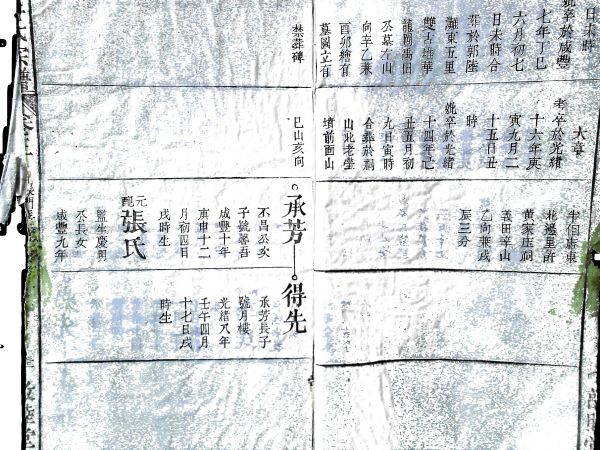 日未時
號卒於咸豐
七年丁巳
六月初七
日未時合
葬於郭陸
灘東五里
雙古雄華
龍圖禹伯
公墓左山
向辛乙兼
酉卯繪有
墓圖立有
禁葬碑
大章
老卒於光緒
十六年庚
寅九月二
十五日丑
時
號卒於光緒
十四年己
丑五月初
九日寅時
合葬於
山北老塋
墳前面山
巳山亥向
半個店東
北邊里許
黃家庄祠
義田辛山
乙向兼戌
辰三分
承芳
不昌公次
子號馨吾
咸豐十年
庚申十二
月初四日
戌時生
元配張氏
監生慶明
公長女
咸豐九年
得先
承芳長子
號月樓
光緒八年
壬午四月
十七日戌
時生